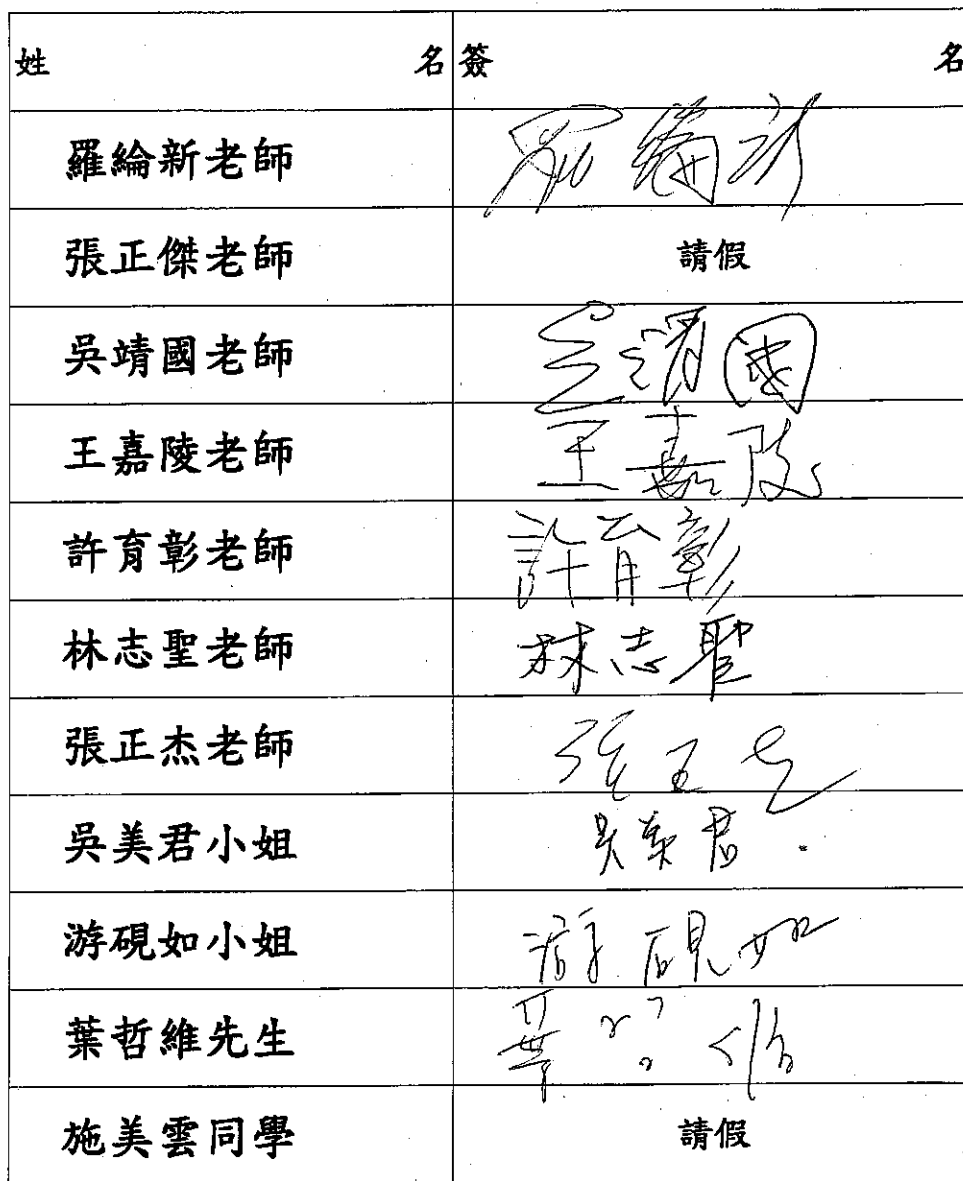 姓名 簽名
羅綸新老師 羅綸新
張正傑老師 請假
吳靖國老師 吳靖國
王嘉陵老師 王嘉陵
許育彰老師 許育彰
林志聖老師 林志聖
張正杰老師 張正杰
吳美君小姐 吳美君
游硯如小姐 游硯如
葉哲維先生 葉
施美雲同學 請假